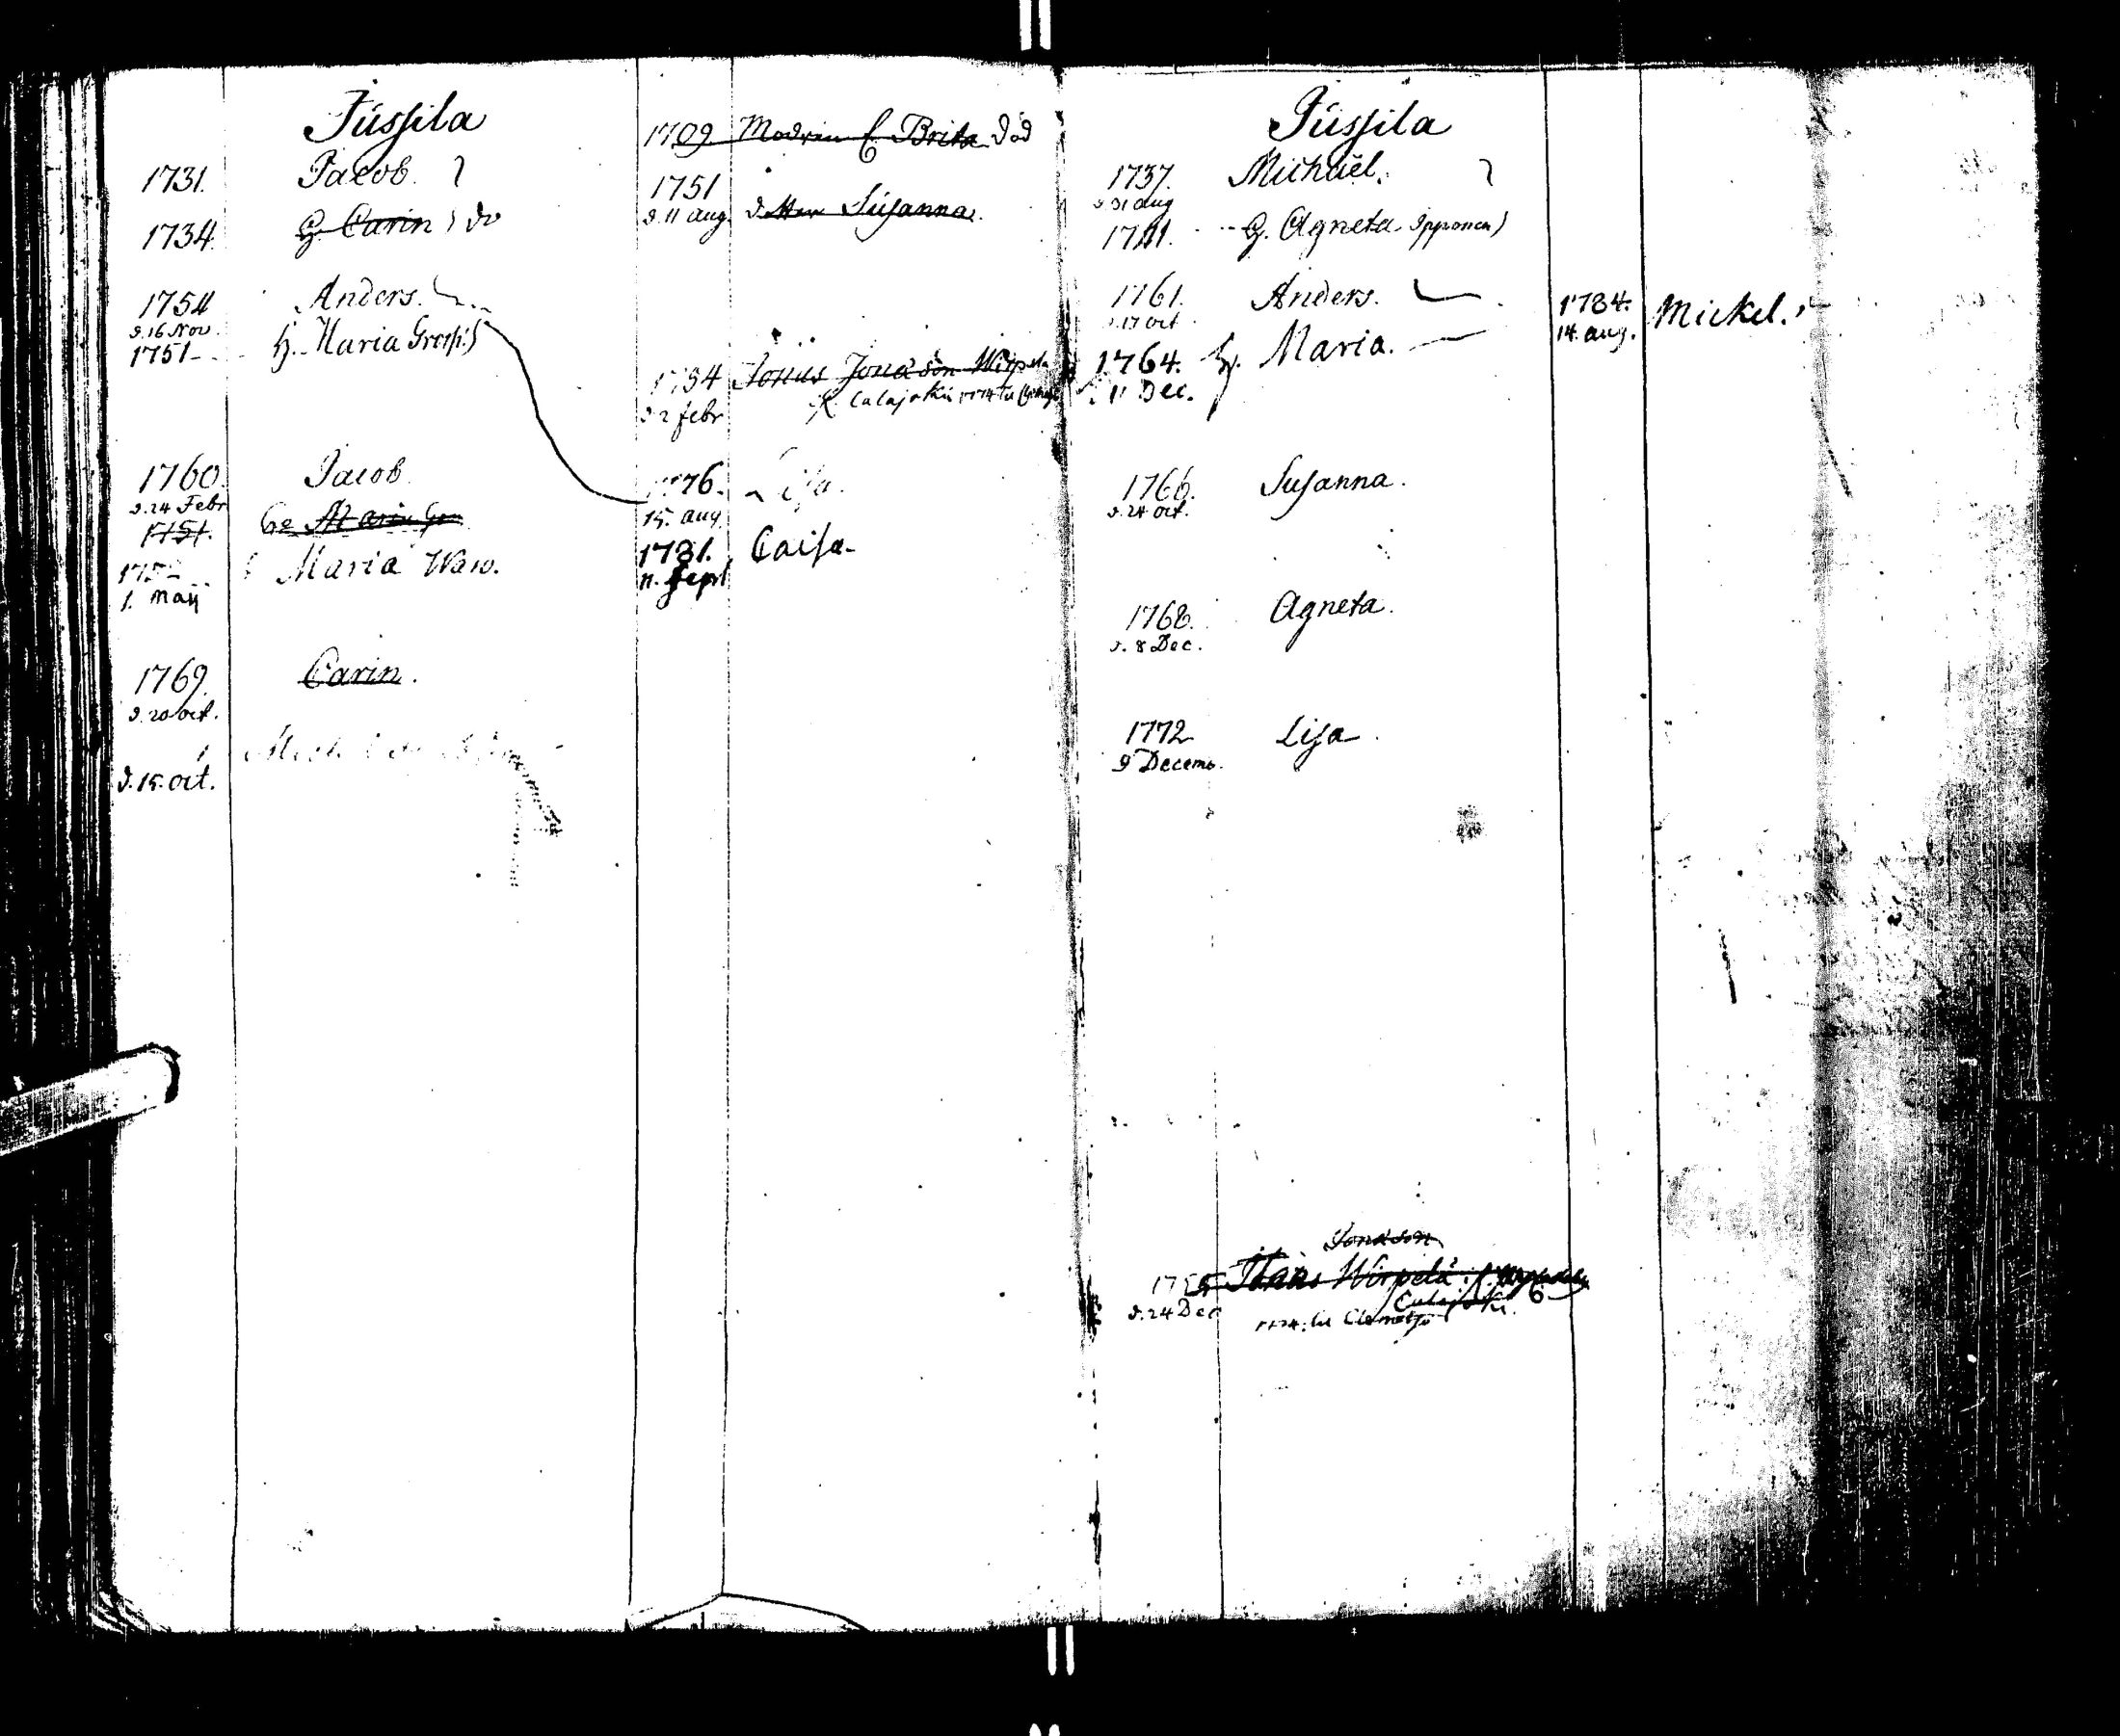 Jüssila
1731. Jacob.
1734. H. Carin do
1754 Anders.
d. 16 Nov.
1751 H. Maria
1760. Jacob.
d. 24 Febr
1751.
Maria Waw.
1. Maij
1769. Carin.
d. 20 oct.
d. 15. oct.
1709. Modren E. Brita död
1751
d. 11 aug. dotter Susanna.
Jonas Jonasson Wirpela
d. 2 febr Calajoki 1774
1776. Lisa.
15. aug
1781. Caisa
11. sept
Jüssila
1737. Michaël.
d 31 aug
1741. H. Agneta Ipponen)
1761. Anders.
d. 17 oct
1764. H. Maria.
11 Dec.
1784. Mickel.
14. aug.
1766. Susanna.
d. 24 oct.
1768. Agneta.
d. 8 Dec.
1772 Lisa.
9 Decemb.
Jonasson
Wirpelä
Calajoki. 6
d. 24 Dec